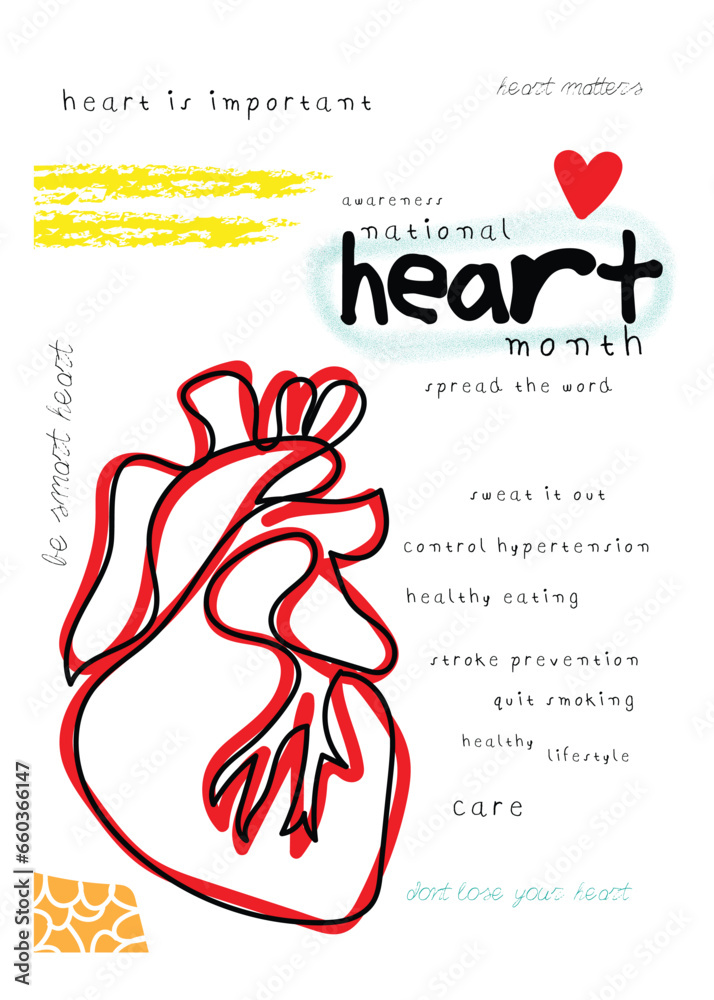 heart matters
heart is important
awareness
national
heart
month
spread the word
be smart heart
sweat it out
control hypertension
healthy eating
stroke prevention
quit smoking
healthy
lifestyle
care
dont lose your heart
Adobe Stock | #660366147
Adobe Stock